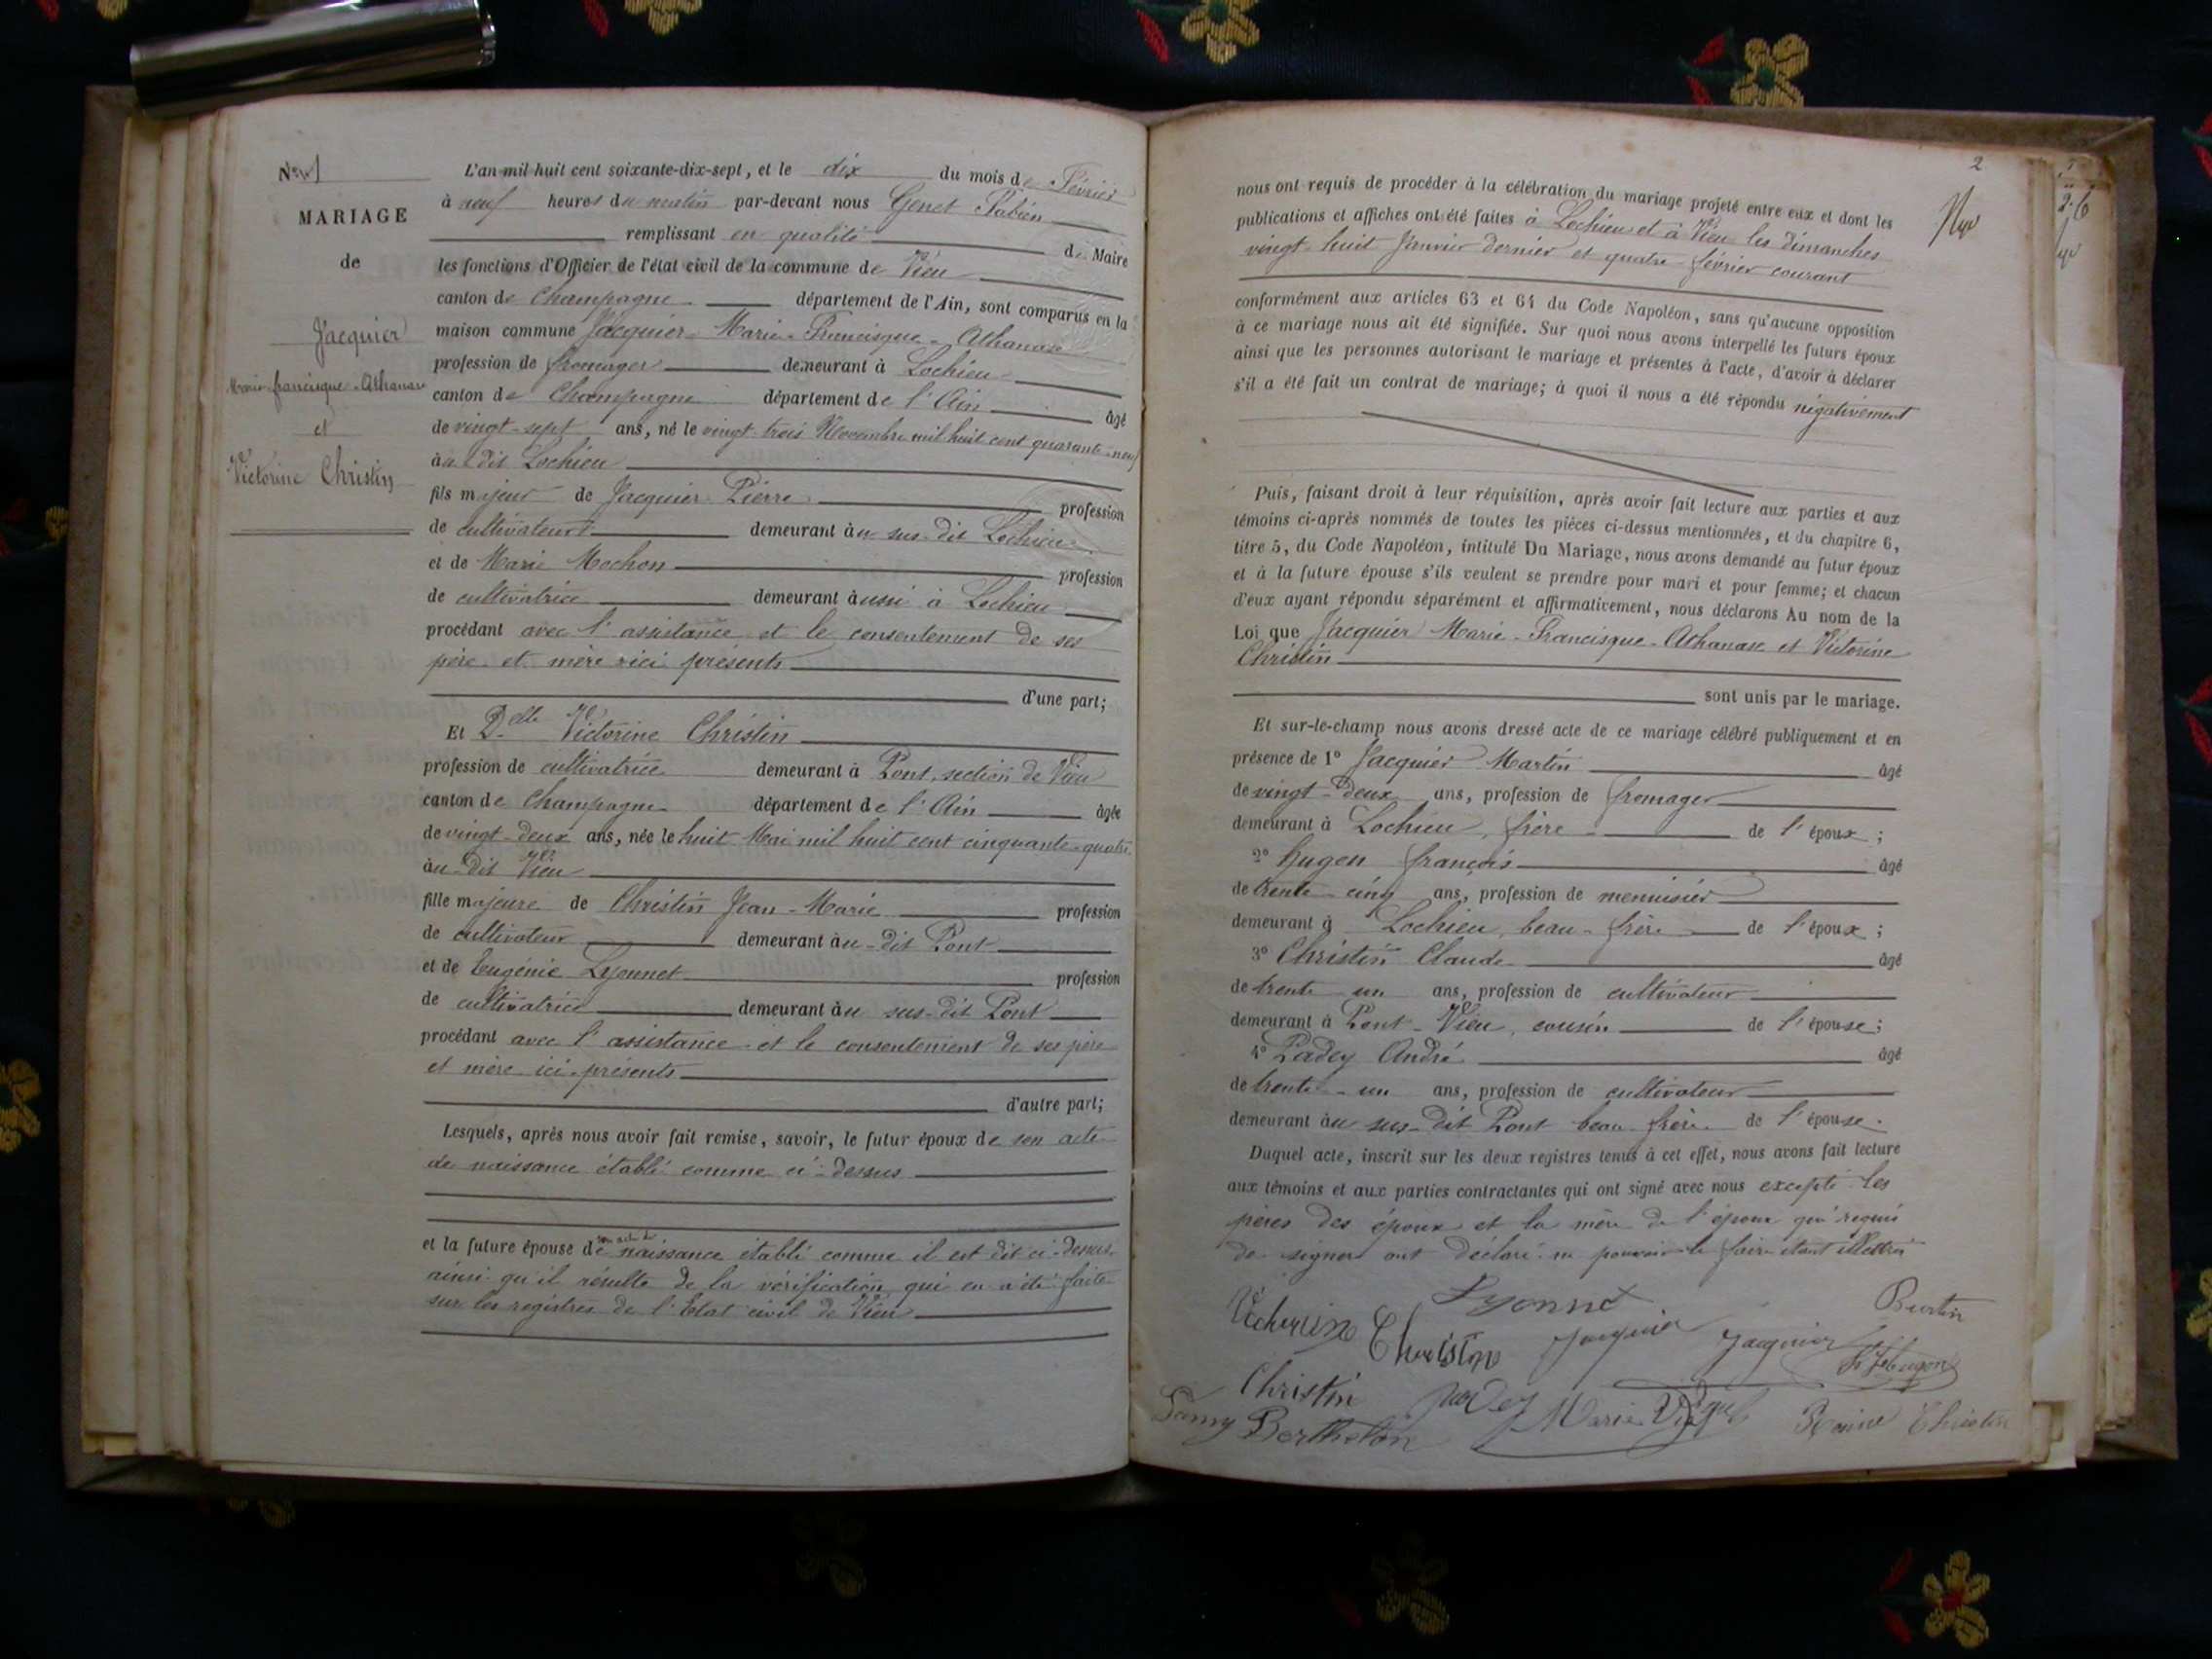 N° 1
MARIAGE
de
Jacquier
Marie-francisque-Athanase
et
Victorine Christin
L'an mil huit cent soixante-dix-sept, et le dix du mois de Février
à neuf heures du matin par-devant nous Genet Fabien
remplissant en qualité de Maire
les fonctions d'Officier de l'état civil de la commune de Vieu
canton de Champagne département de l'Ain, sont comparus en la
maison commune Jacquier Marie-Francisque-Athanase
profession de fromager demeurant à Lochieu
canton de Champagne département de l'Ain âgé
de vingt-sept ans, né le vingt-trois Novembre mil huit cent quarante-neuf
au dit Lochieu
fils majeur de Jacquier Pierre profession
de cultivateur demeurant au sus-dit Lochieu
et de Marie Mochon profession
de cultivatrice demeurant aussi à Lochieu
procédant avec l'assistance et le consentement de ses
père et mère ici présents
d'une part;
Et Delle Victorine Christin
profession de cultivatrice demeurant à Pont, section de Vieu
canton de Champagne département de l'Ain âgée
de vingt-deux ans, née le huit Mai mil huit cent cinquante-quatre
au-dit Vieu
fille majeure de Christin Jean-Marie profession
de cultivateur demeurant au-dit Pont
et de Eugénie Lyonnet profession
de cultivatrice demeurant au sus-dit Pont
procédant avec l'assistance et le consentement de ses père
et mère ici présents
d'autre part;
Lesquels, après nous avoir fait remise, savoir, le futur époux de son acte
de naissance établi comme ci-dessus
et la future épouse de son acte de naissance établi comme il est dit ci-dessus
ainsi qu'il résulte de la vérification qui en a été faite
sur les registres de l'Etat civil de Vieu
2
nous ont requis de procéder à la célébration du mariage projeté entre eux et dont les
publications et affiches ont été faites à Lochieu et à Vieu les dimanches
vingt-huit Janvier dernier et quatre février courant
conformément aux articles 63 et 64 du Code Napoléon, sans qu'aucune opposition
à ce mariage nous ait été signifiée. Sur quoi nous avons interpellé les futurs époux
ainsi que les personnes autorisant le mariage et présentes à l'acte, d'avoir à déclarer
s'il a été fait un contrat de mariage; à quoi il nous a été répondu négativement
Puis, faisant droit à leur réquisition, après avoir fait lecture aux parties et aux
témoins ci-après nommés de toutes les pièces ci-dessus mentionnées, et du chapitre 6,
titre 5, du Code Napoléon, intitulé Du Mariage, nous avons demandé au futur époux
et à la future épouse s'ils veulent se prendre pour mari et pour femme; et chacun
d'eux ayant répondu séparément et affirmativement, nous déclarons Au nom de la
Loi que Jacquier Marie-Francisque-Athanase et Victorine
Christin
sont unis par le mariage.
Et sur-le-champ nous avons dressé acte de ce mariage célébré publiquement et en
présence de 1° Jacquier Martin âgé
de vingt-deux ans, profession de fromager
demeurant à Lochieu, frère de l'époux;
2° hugon françois âgé
de trente cinq ans, profession de menuisier
demeurant à Lochieu, beau-frère de l'époux;
3° Christin Claude âgé
de trente un ans, profession de cultivateur
demeurant à Pont-Vieu, cousin de l'épouse;
4° Padey André âgé
de trente-un ans, profession de cultivateur
demeurant au sus-dit Pont beau-frère de l'épouse.
Duquel acte, inscrit sur les deux registres tenus à cet effet, nous avons fait lecture
aux témoins et aux parties contractantes qui ont signé avec nous excepté les
pères des époux et la mère de l'époux qui requis
de signer ont déclaré ne pouvoir le faire étant illettrés
Lyonnet Burtin
Victorine Christin Jacquier Jacquier hugon
Christin Padey Marie Reine Christin
Berthelon